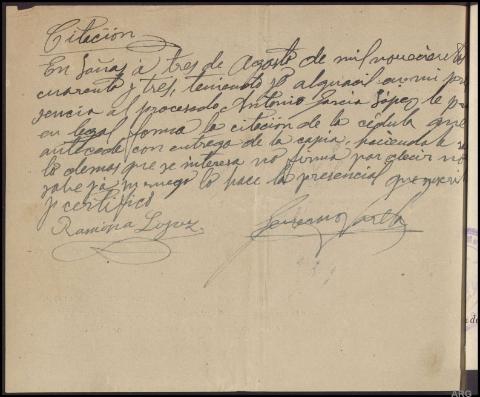 Citación
En Lañas a tres de Agosto de mil novecientos
cuarenta y tres, teniendo yo alguacil en mi pre
sencia al procesado, Antonio Garcia López, le
en legal forma la citación de la cédula que
antecede con entrega de la copia, haciendo
lo demas que se interesa no firma por decir no
sabe y a mi ruego lo hace la presencial que
y certifico
Ramona Lopez.
ARG